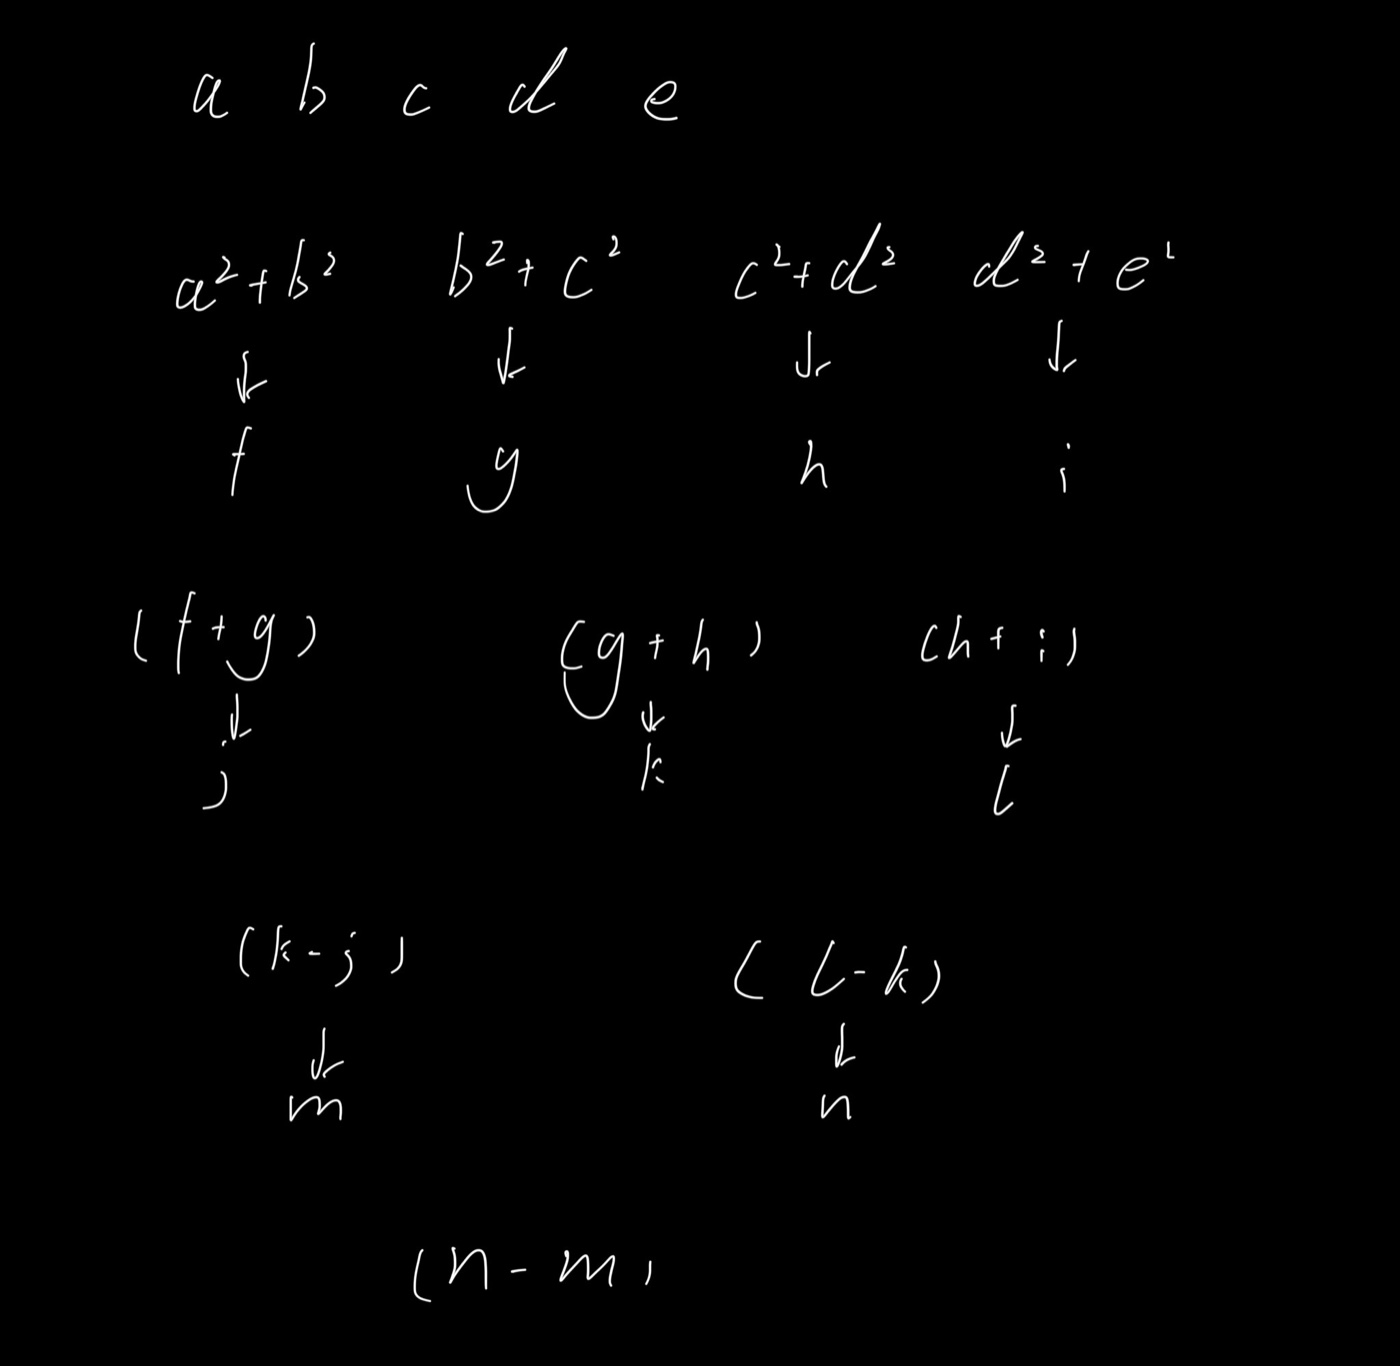 a b c d e
a²+b² b²+c² c²+d² d²+e²
↓ ↓ ↓ ↓
f g h i
(f+g) (g+h) (h+i)
↓ ↓ ↓
j k l
(k-j) (l-k)
↓ ↓
m n
(n-m)